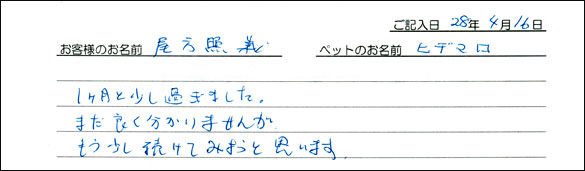 ご記入日 28年 4月16日
お客様のお名前 尾方照義 ペットのお名前 ヒデマロ
1ヶ月と少し過ぎました。
まだ良く分かりませんが
もう少し続けてみようと思います